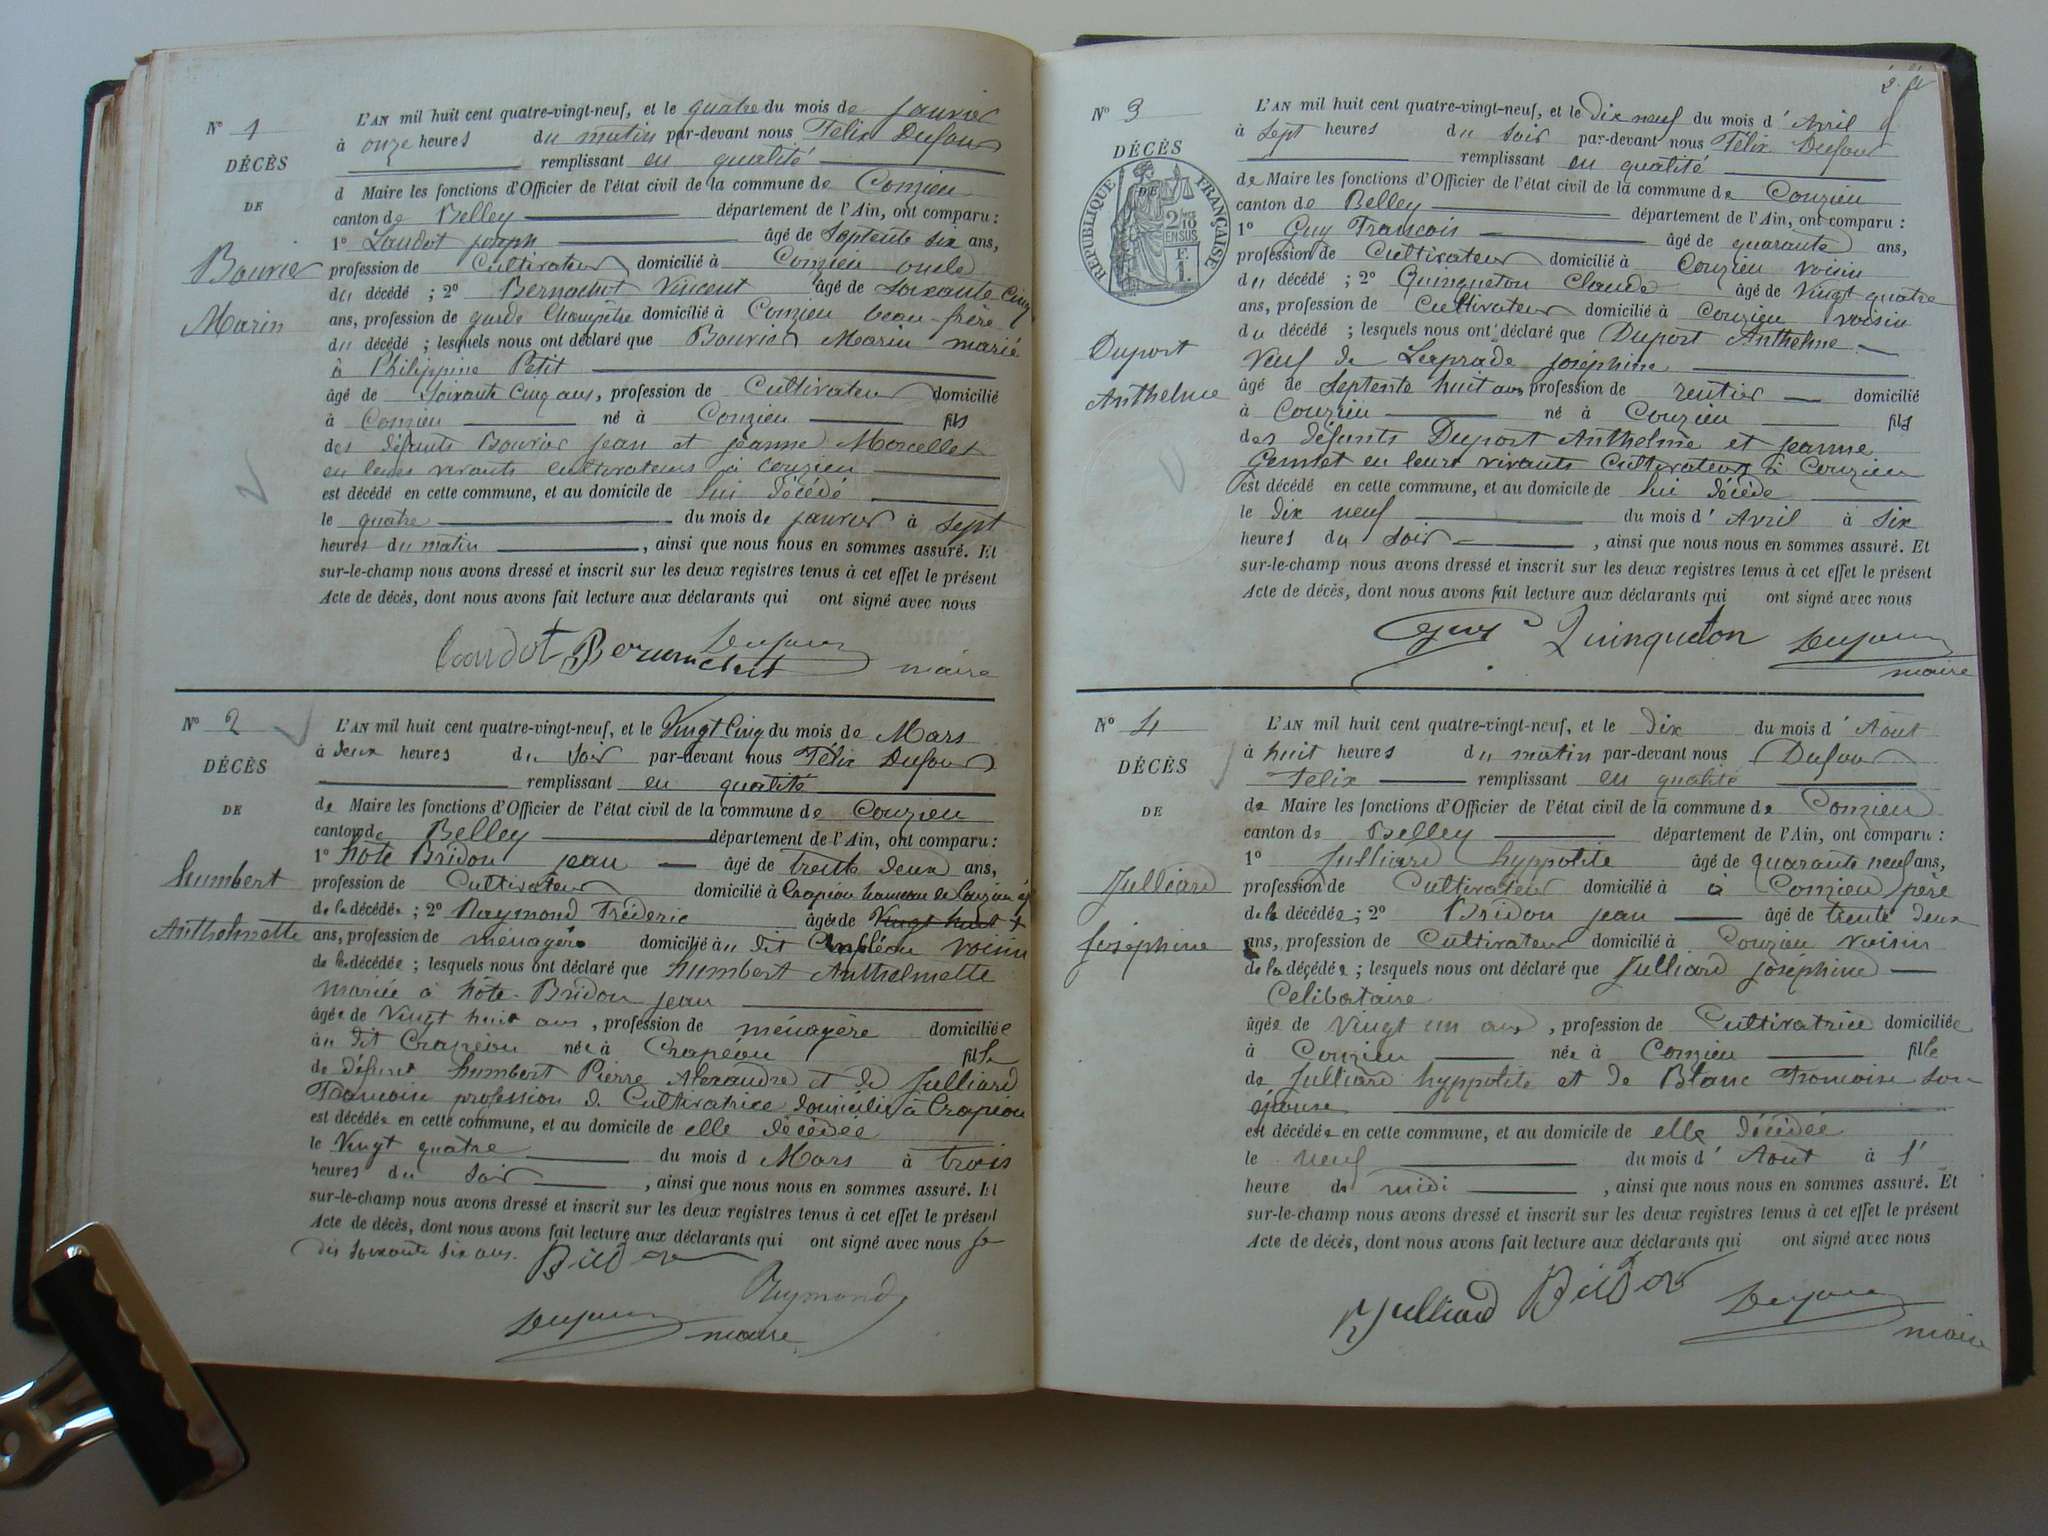 N° 1
DÉCÈS
DE
Bouvier
Marin
L'AN mil huit cent quatre-vingt-neuf, et le quatre du mois de janvier
à onze heures du matin par-devant nous Félix Dufour
remplissant en qualité
d Maire les fonctions d'Officier de l'état civil de la commune de Conzieu
canton de Belley département de l'Ain, ont comparu :
1° Landot joseph âgé de Septente six ans,
profession de Cultivateur domicilié à Conzieu oncle
du décédé ; 2° Bernachot Vincent âgé de soixante cinq
ans, profession de garde Champêtre domicilié à Conzieu beau-frère
du décédé ; lesquels nous ont déclaré que Bouvier Marin marié
à Philippine Petit
âgé de Soixante Cinq ans, profession de Cultivateur domicilié
à Conzieu né à Conzieu fils
des défunts Bouvier jean et jeanne Morcellet
en leurs vivants cultivateurs à Conzieu
est décédé en cette commune, et au domicile de lui décédé
le quatre du mois de janvier à sept
heures du matin , ainsi que nous nous en sommes assuré. Et
sur-le-champ nous avons dressé et inscrit sur les deux registres tenus à cet effet le présent
Acte de décès, dont nous avons fait lecture aux déclarants qui ont signé avec nous
Landot Bernachot Dufour
maire
N° 2
DÉCÈS
DE
humbert
Anthelmette
L'AN mil huit cent quatre-vingt-neuf, et le Vingt Cinq du mois de Mars
à deux heures du soir par-devant nous Félix Dufour
remplissant en qualité
de Maire les fonctions d'Officier de l'état civil de la commune de Conzieu
canton de Belley département de l'Ain, ont comparu :
1° hôte Bridon jean âgé de trente deux ans,
profession de Cultivateur domicilié à Crapéou hameau de Conzieu
de la décédée ; 2° Raymond Fréderic âgé de Vingt huit +
ans, profession de ménagère domicilié à u dit Crapéou voisin
de la décédée ; lesquels nous ont déclaré que humbert Anthelmette
mariée à hôte-Bridon jean
âgée de Vingt huit ans , profession de ménagère domiciliée
à u dit Crapéou née à Crapéou fille
de défunt humbert Pierre Alexandre et de Julliard
Francoise profession de Cultivatrice domiciliée à Crapéou
est décédée en cette commune, et au domicile de elle décédée
le Vingt quatre du mois d Mars à trois
heures du soir , ainsi que nous nous en sommes assuré. Et
sur-le-champ nous avons dressé et inscrit sur les deux registres tenus à cet effet le présent
Acte de décès, dont nous avons fait lecture aux déclarants qui ont signé avec nous
dis soixante six ans. Bridon
Raymond
Dufour maire
N° 3
DÉCÈS
DE
RÉPUBLIQUE FRANÇAISE
2/10 EN SUS
F.
1.
Duport
Anthelme
L'AN mil huit cent quatre-vingt-neuf, et le dix neuf du mois d' Avril
à sept heures du soir par-devant nous Félix Dufour
remplissant en qualité
de Maire les fonctions d'Officier de l'état civil de la commune de Conzieu
canton de Belley département de l'Ain, ont comparu :
1° Guy Francois âgé de quarante ans,
profession de Cultivateur domicilié à Conzieu voisin
du décédé ; 2° Quinqueton Claude âgé de Vingt quatre
ans, profession de Cultivateur domicilié à Conzieu voisin
du décédé ; lesquels nous ont déclaré que Duport Anthelme
veuf de Leprade joséphine
âgé de Septente huit ans profession de rentier domicilié
à Conzieu né à Conzieu fils
des défunts Duport Anthelme et jeanne
en leurs vivants Cultivateurs à Conzieu
est décédé en cette commune, et au domicile de lui décédé
le dix neuf du mois d' Avril à six
heures du soir , ainsi que nous nous en sommes assuré. Et
sur-le-champ nous avons dressé et inscrit sur les deux registres tenus à cet effet le présent
Acte de décès, dont nous avons fait lecture aux déclarants qui ont signé avec nous
Guy Quinqueton Dufour
maire
N° 4
DÉCÈS
DE
Julliard
Joséphine
L'AN mil huit cent quatre-vingt-neuf, et le dix du mois d' Aout
à huit heures du matin par-devant nous Dufour
Felix remplissant en qualité
de Maire les fonctions d'Officier de l'état civil de la commune de Conzieu
canton de Belley département de l'Ain, ont comparu :
1° Julliard hyppolite âgé de quarante neuf ans,
profession de Cultivateur domicilié à à Conzieu père
de la décédée ; 2° Bridon jean âgé de trente deux
ans, profession de Cultivateur domicilié à Conzieu voisin
de la décédée ; lesquels nous ont déclaré que Julliard joséphine
Celibataire
âgée de Vingt un ans , profession de Cultivatrice domiciliée
à Conzieu née à Conzieu fille
de Julliard hyppolite et de Blanc Francoise son
épouse
est décédée en cette commune, et au domicile de elle décédée
le neuf du mois d' Aout à 1'
heure de midi , ainsi que nous nous en sommes assuré. Et
sur-le-champ nous avons dressé et inscrit sur les deux registres tenus à cet effet le présent
Acte de décès, dont nous avons fait lecture aux déclarants qui ont signé avec nous
Julliard Bridon Dufour
maire